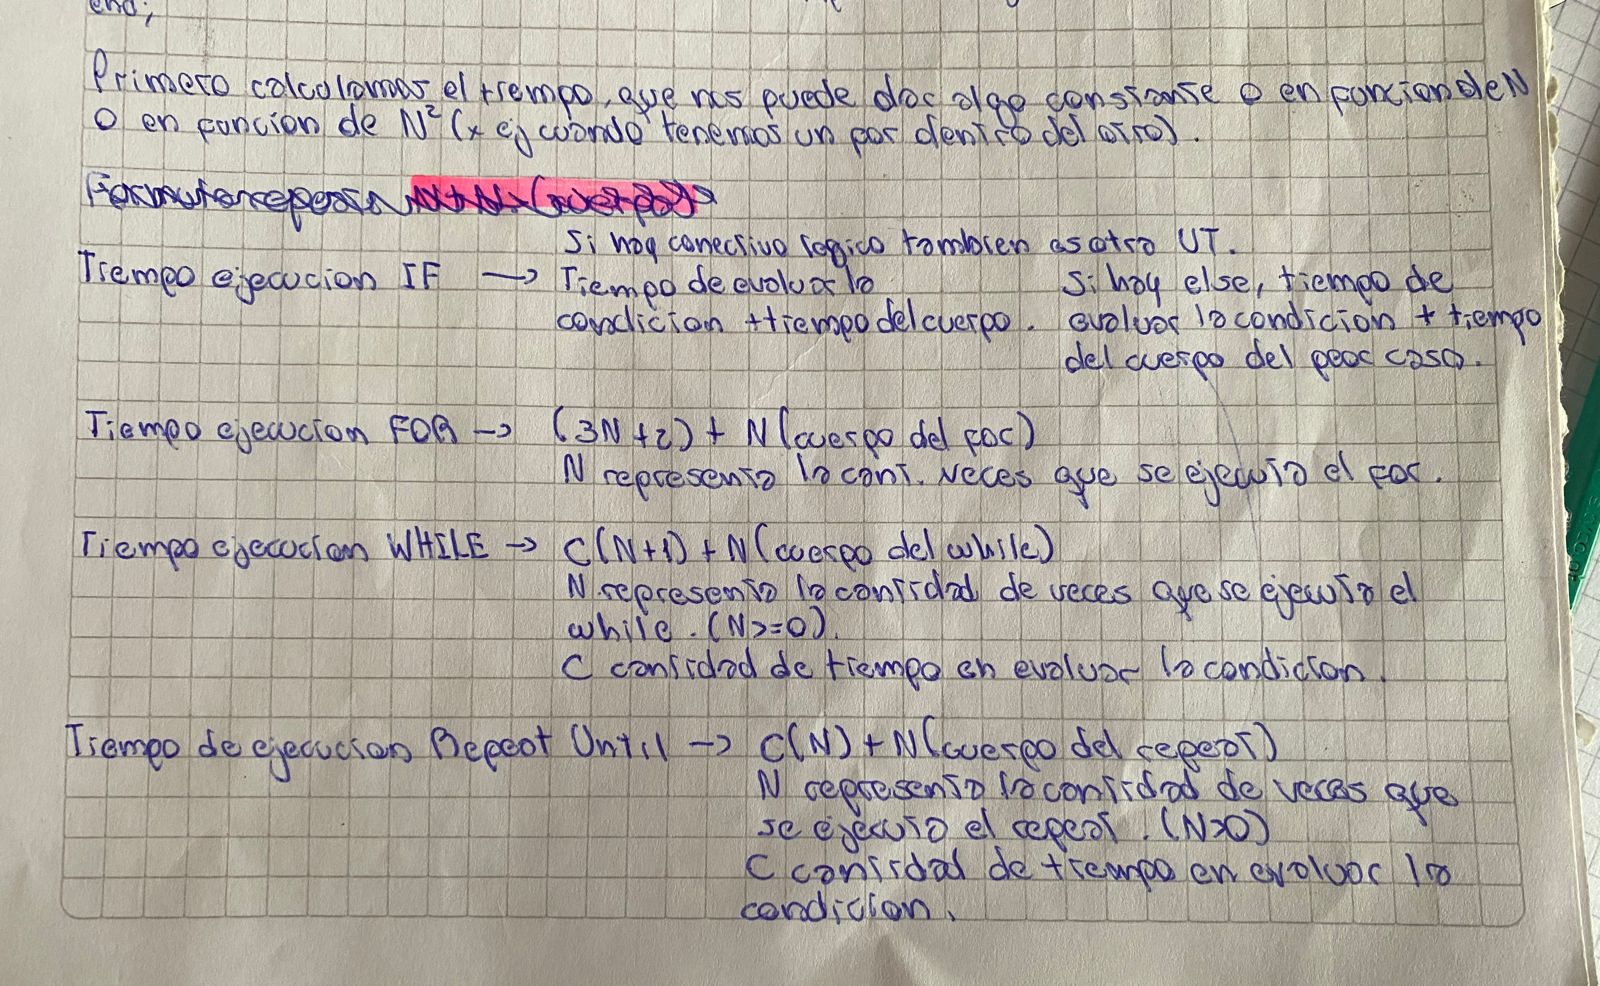 end;
Primero calculamos el tiempo, que nos puede dar algo constante o en funcion de N
O en funcion de N² (x ej cuando tenemos un for dentro del otro).
N+N.(cuerpo)
Si hay conectivo logico tambien es otra UT.
Tiempo ejecucion IF → Tiempo de evaluar la
condicion + tiempo del cuerpo.
Si hay else, tiempo de
evaluar la condicion + tiempo
del cuerpo del peor caso.
Tiempo ejecucion FOR → (3N+2) + N(cuerpo del for)
N representa la cant. veces que se ejecuta el for.
Tiempo ejecucion WHILE → C(N+1) + N(cuerpo del while)
N representa la cantidad de veces que se ejecuta el
while. (N>=0).
C cantidad de tiempo en evaluar la condicion.
Tiempo de ejecucion Repeat Until → C(N) + N(cuerpo del repeat)
N representa la cantidad de veces que
se ejecuta el repeat. (N>0)
C cantidad de tiempo en evaluar la
condicion.